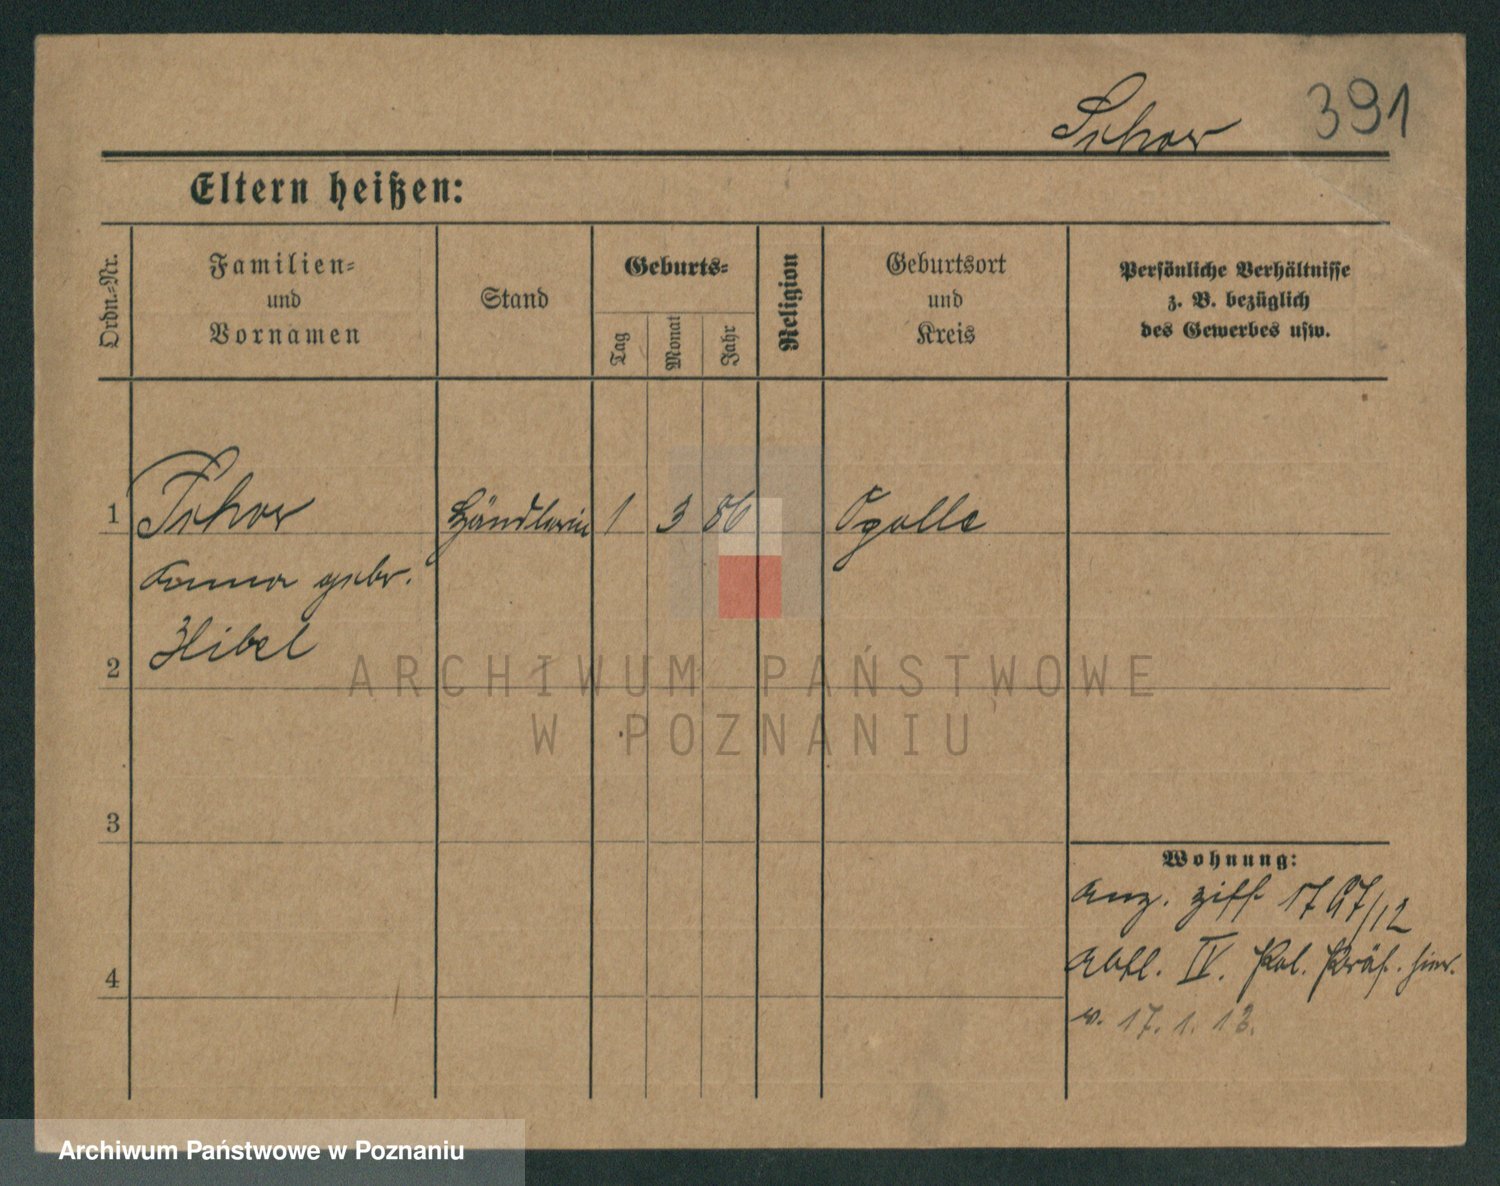 Schor 391
Eltern heißen:
Ordn.-Nr.
Familien-
und
Vornamen
Stand
Geburts-
Tag
Monat
Jahr
Religion
Geburtsort
und
Kreis
Persönliche Verhältnisse
z. B. bezüglich
des Gewerbes usw.
1 Schor Händlerin 1 3 86 Ogolle
Anna gebr.
2 Hibel
ARCHIWUM PAŃSTWOWE
W POZNANIU
3
Wohnung:
Anz. ziff 1797/12
4 Abtl. IV. Pol. Präs. hier.
v. 17. 1. 13.
Archiwum Państwowe w Poznaniu